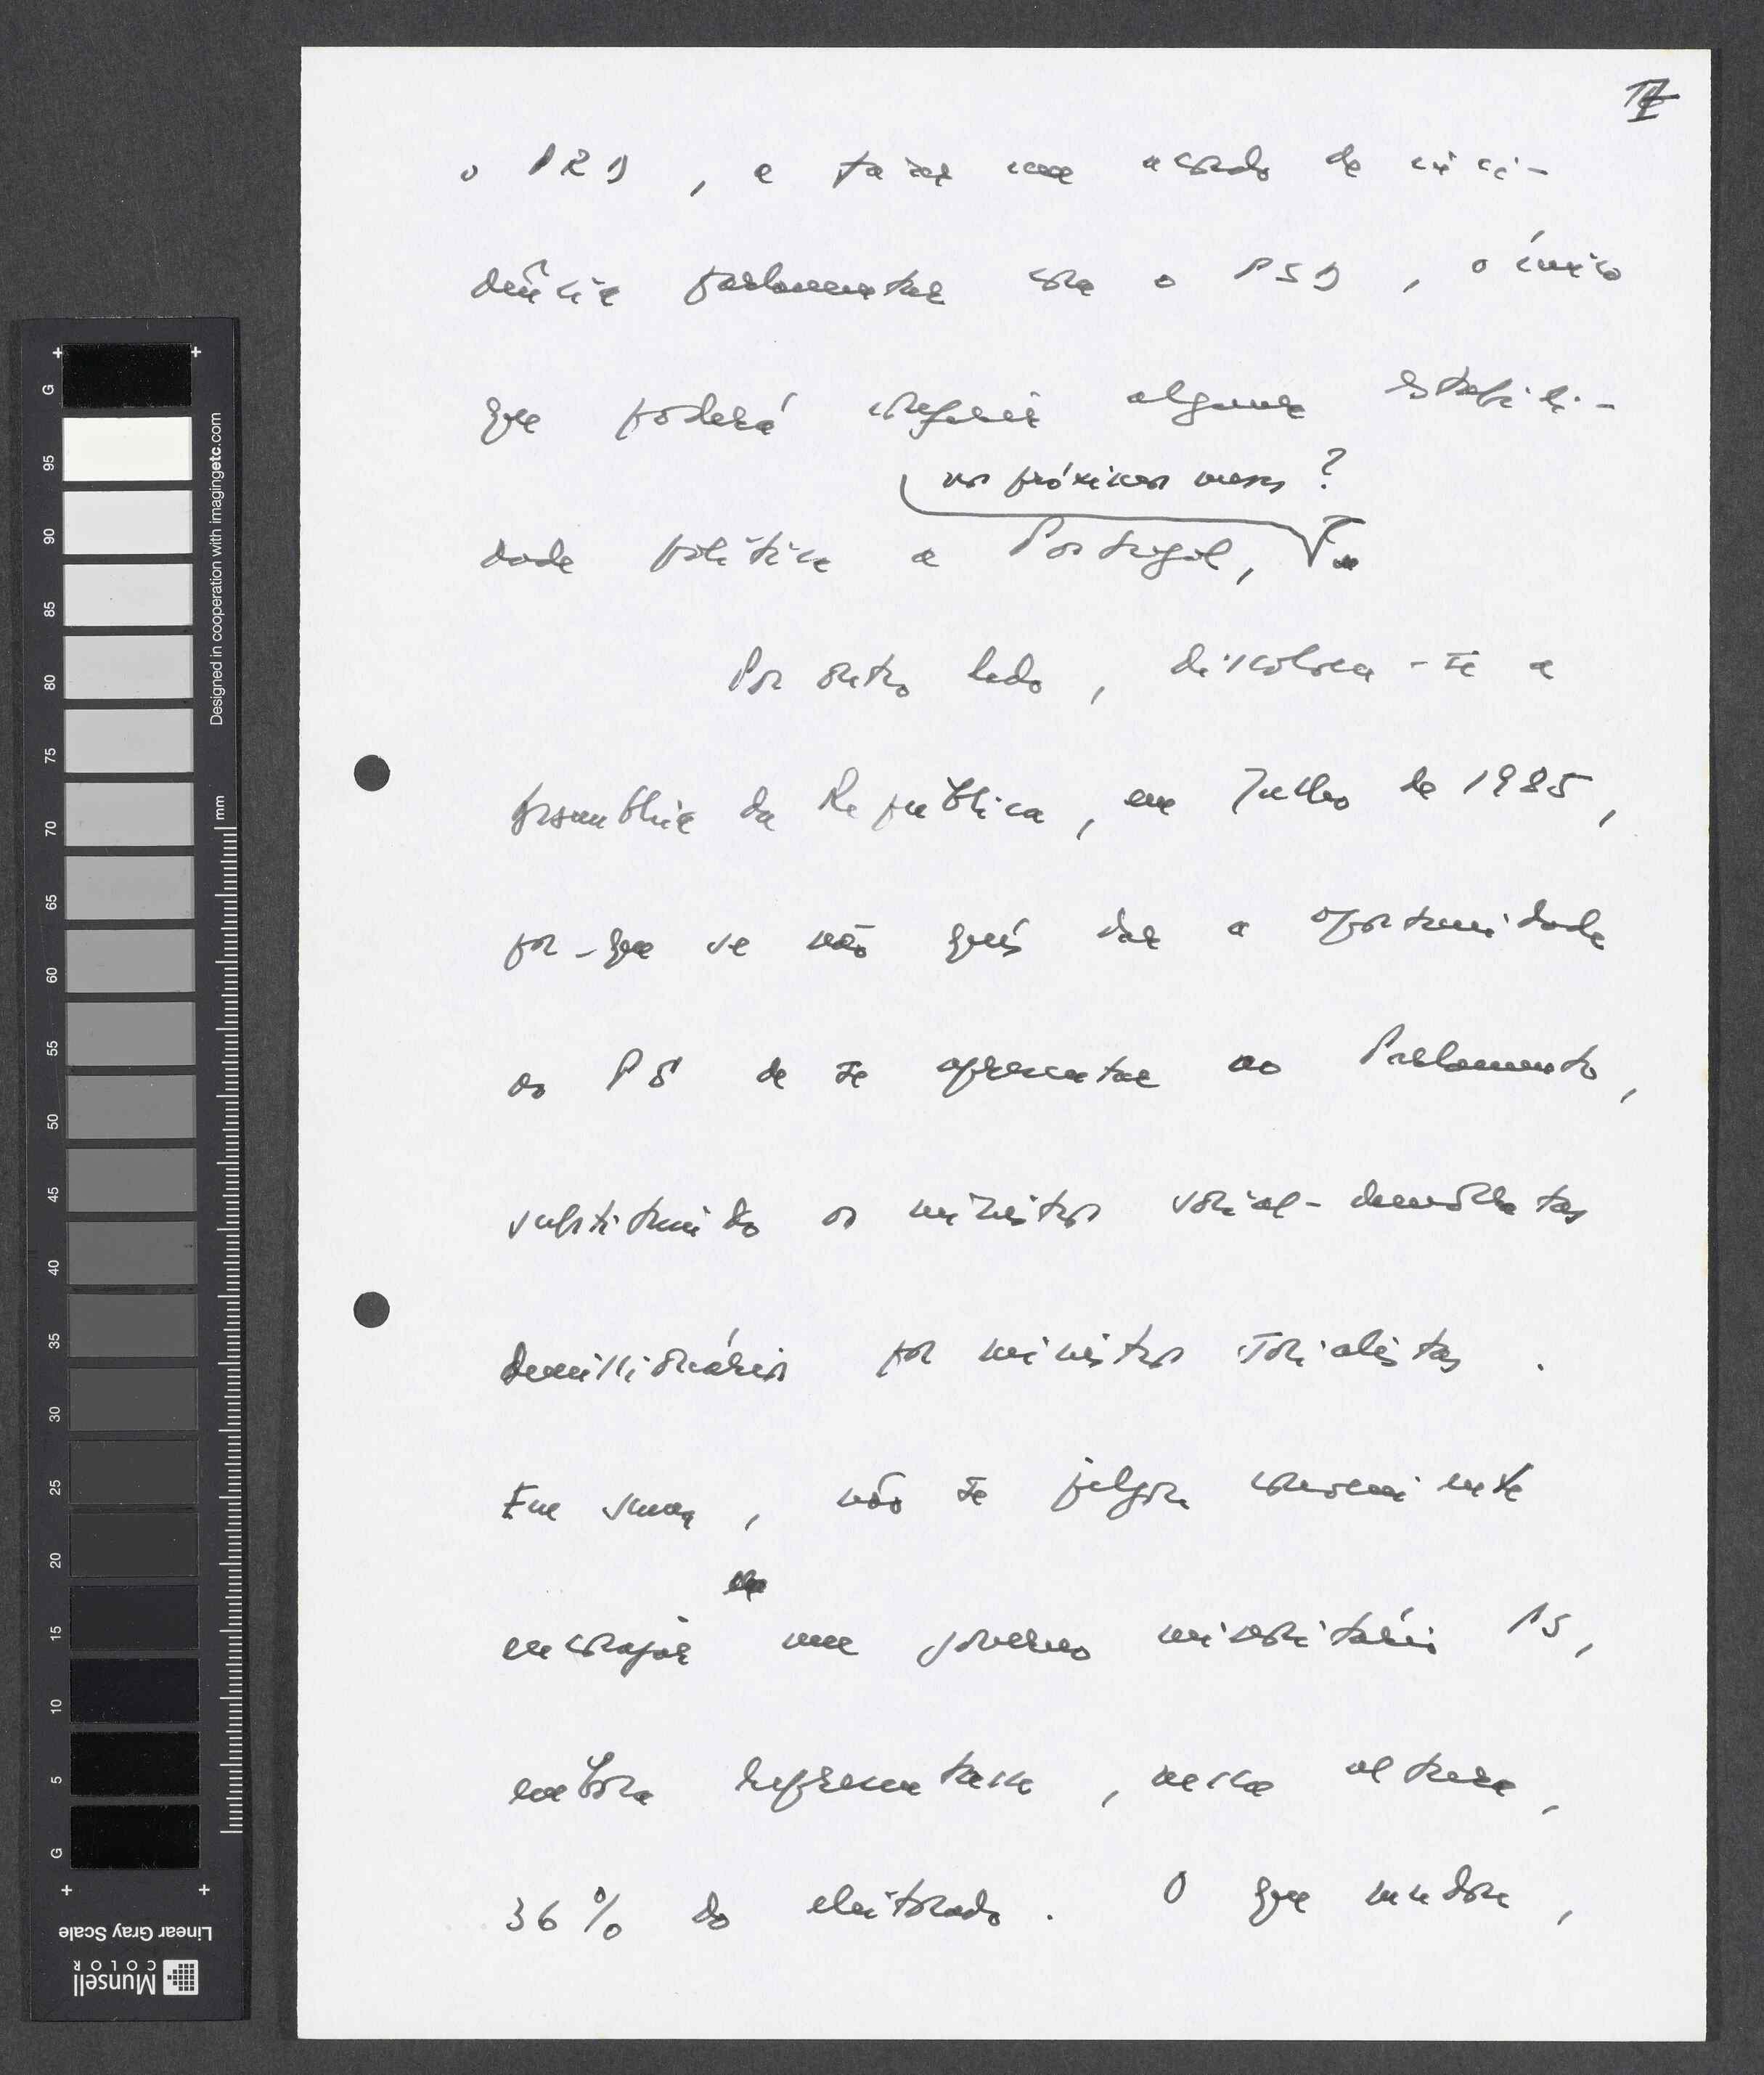 IV
o PRD, a fazer um acordo de inci-
dência parlamentar com o PSD, o único
que poderá conferir alguma estabili-
nos próximos meses?
dade política a Portugal,
Por outro lado, dissolveu-se a
Assembleia da República, em Julho de 1985,
por-que se não quis dar a oportunidade
ao PS de se apresentar ao Parlamento,
substituindo os ministros social-democratas
demissionários por ministros socialistas.
Em suma, não se julgou conveniente
encorajar um governo minoritário PS,
embora representasse, nessa altura,
36% do eleitorado. O que mudou,
G
95
90
85
80
75
70
65
60
55
50
45
40
35
30
25
20
15
10
5
G
mm
Designed in cooperation with imagingetc.com
Linear Gray Scale
Munsell
COLOR